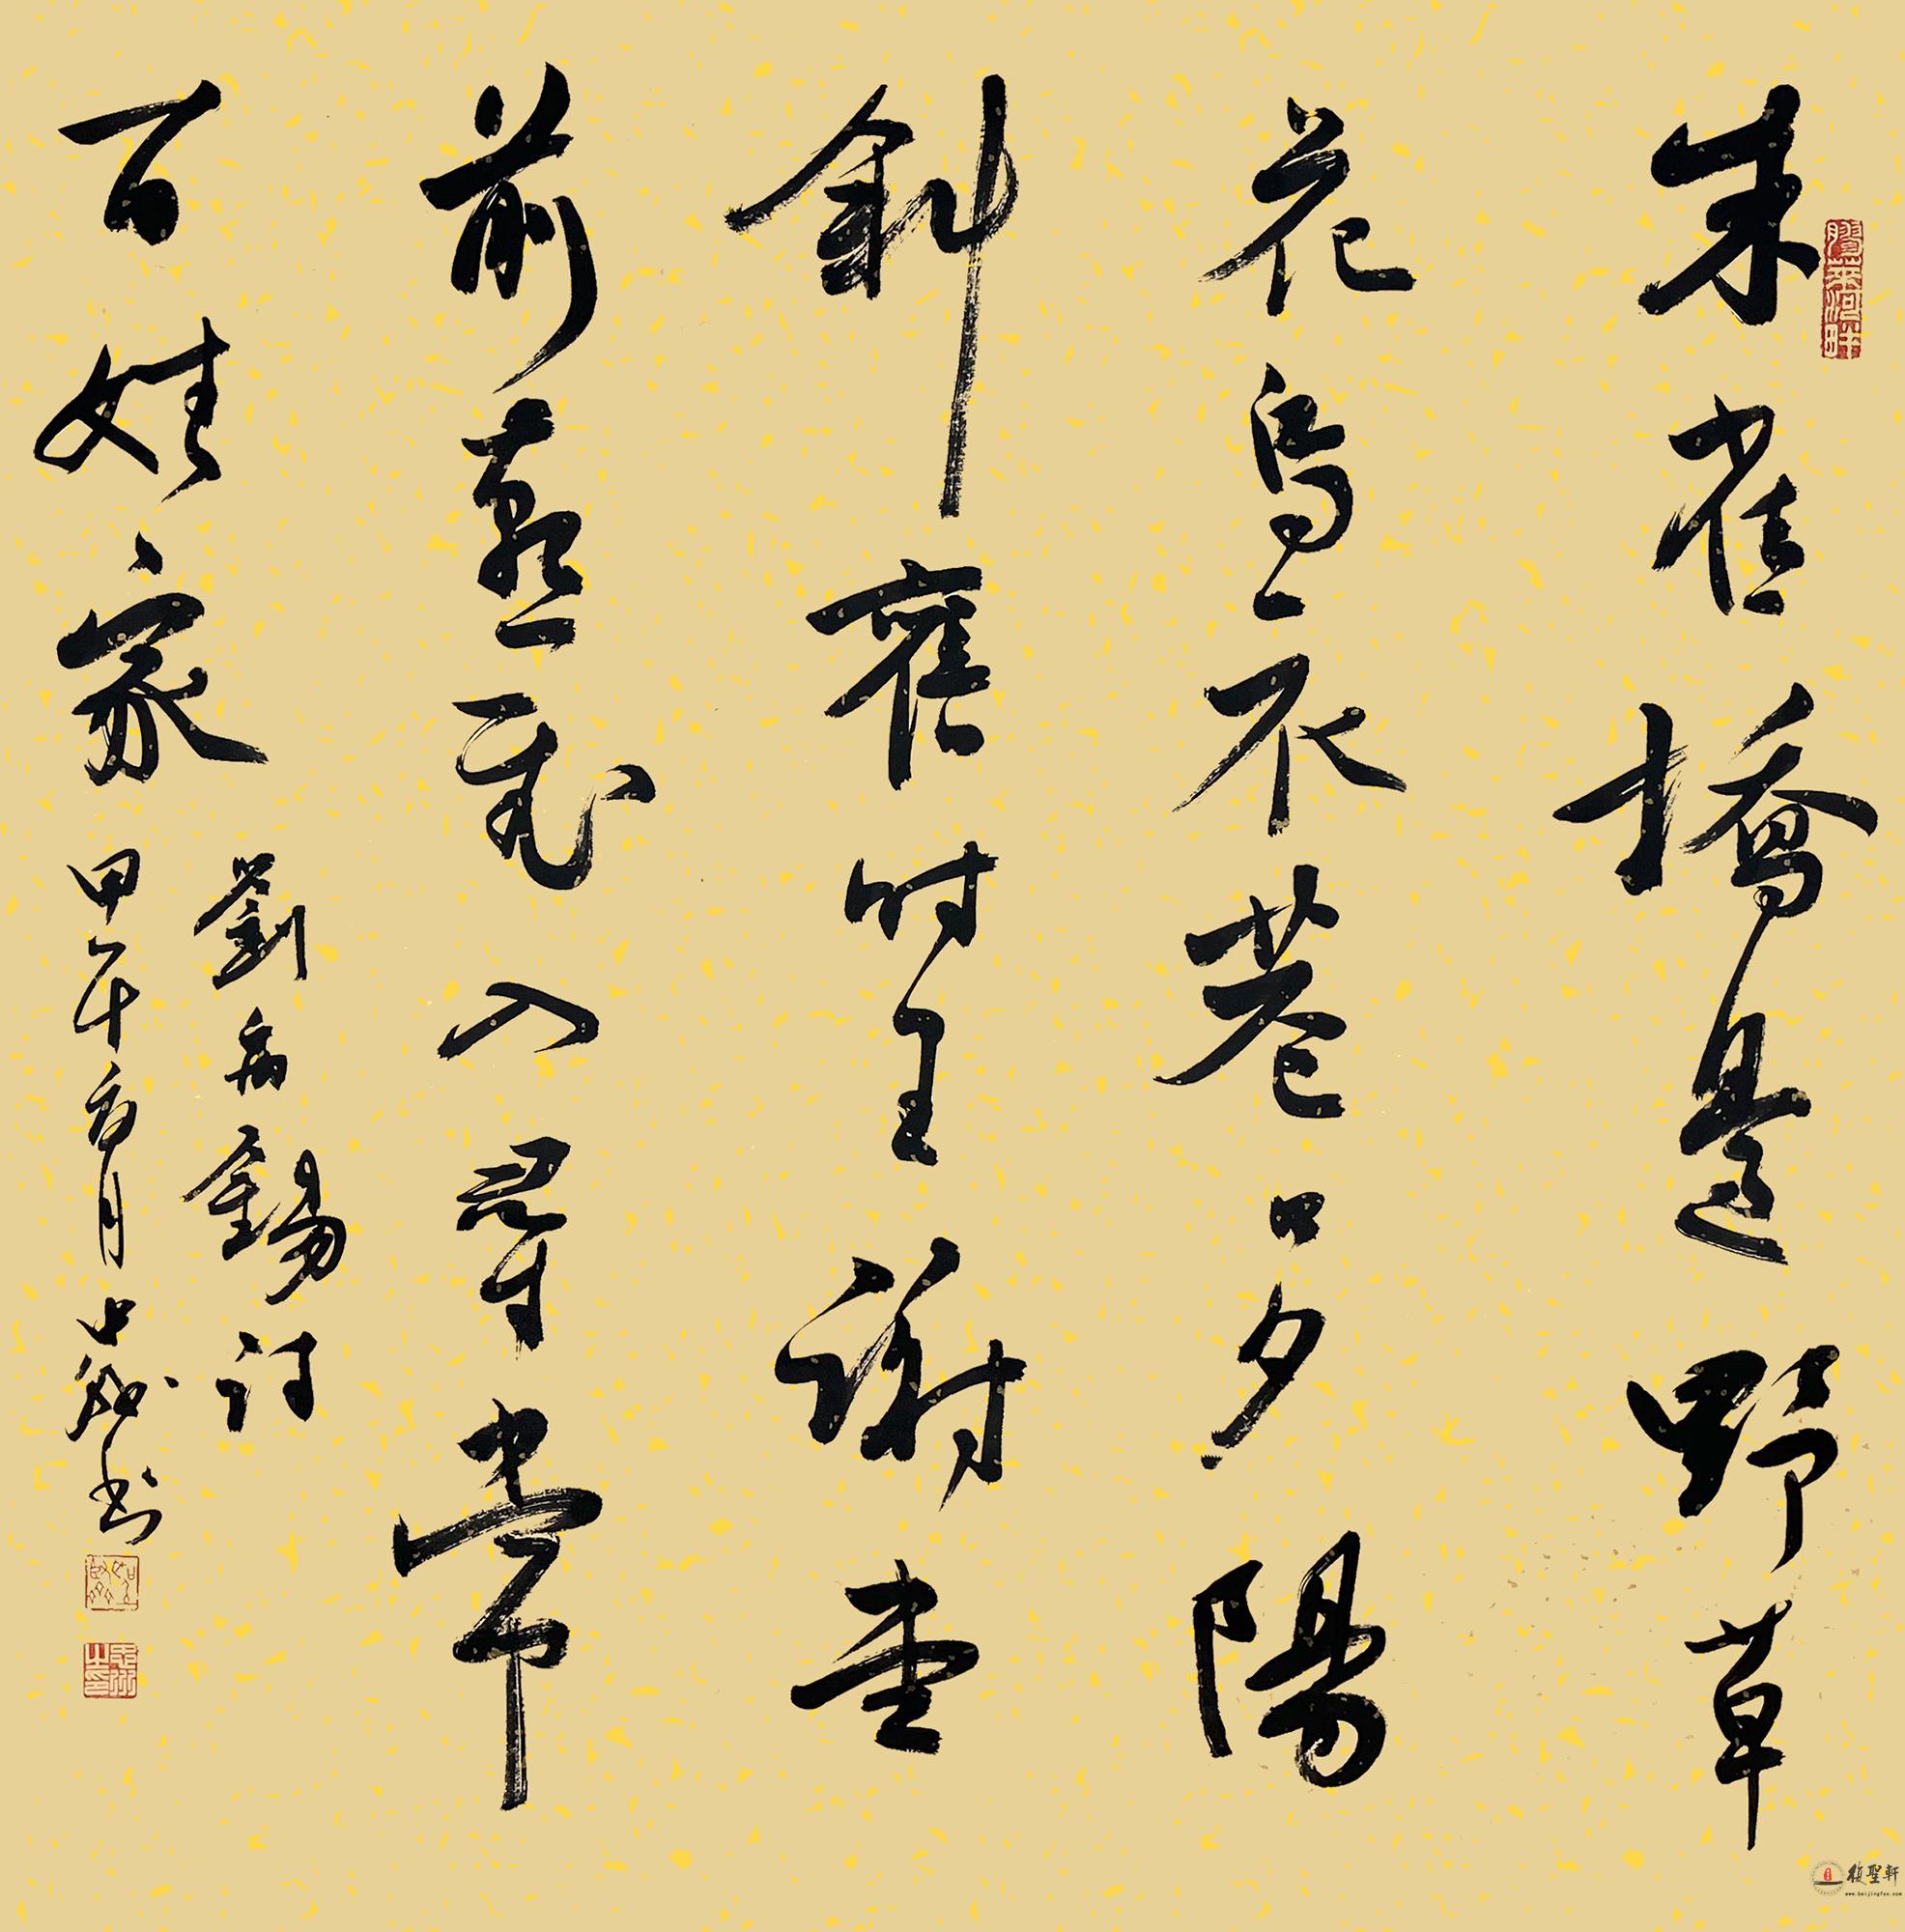 朱雀橋邊野草
花烏衣巷口夕陽
斜舊時王謝堂
前燕飛入尋常
百姓家
劉禹錫詩
甲午月书
膠萊河畔
聖軒